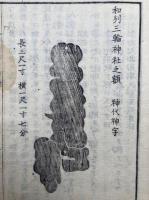 和州三輪神社之額　神代神字
長三尺一寸　横一尺一寸七分